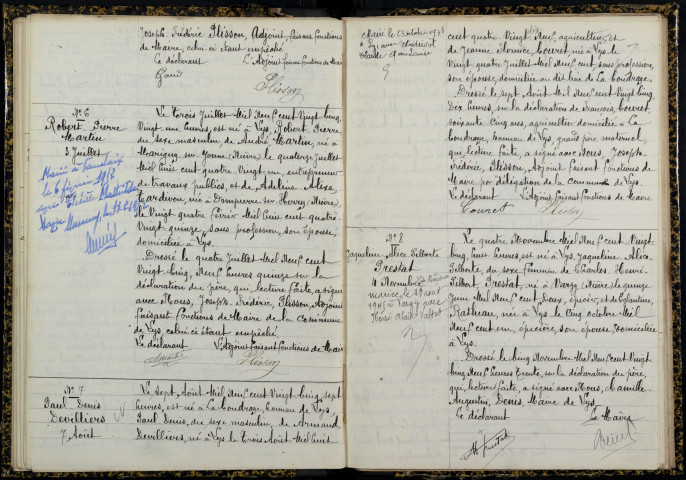 Joseph, Frédéric Plisson, Adjoint, faisant fonctions
de Maire, celui ci étant empêché
Le déclarant L'Adjoint faisant fonctions de Maire
Plisson
N° 6
Robert, Pierre
Martin
3 Juillet
Marié à
le 6 février 19
avec
Le trois Juillet Mil Neuf cent Vingt cinq,
Vingt une heures, est né à Lys, Robert, Pierre,
du sexe masculin, de André Martin, né à
Marigny sur Yonne (Nièvre) le quatorze Juillet
Mil huit cent quatre Vingt un, entrepreneur
de travaux publics, et de Adeline, Alixe,
Tardivon, née à Dompierre sur Héry (Nièvre)
le Vingt quatre février Mil huit cent quatre
Vingt quinze, sans profession, son épouse,
domiciliés à Lys.
Dressé le quatre Juillet Mil Neuf cent
Vingt cinq, Neuf heures quinze sur la
déclaration du père, qui, lecture faite, a signé
avec Nous, Joseph, Frédéric, Plisson, Adjoint
faisant fonctions de Maire de la commune
de Lys, celui ci étant empêché.
Le déclarant L'Adjoint faisant fonctions de Maire
Plisson
N° 7
Paul Denis
Devilliers
7 Août
Le sept Août Mil Neuf cent Vingt cinq, sept
heures, est né à La boudraye, hameau de Lys,
Paul Denis, du sexe masculin, de Armand
Devilliers, né à Lys le trois Août Mil huit
Marié le 23 octobre 1948
à
cent quatre Vingt dix Neuf, agriculteur, et
de Jeanne Florence Couret, née à Lys le
Vingt quatre Juillet Mil Neuf cent, sans profession,
son épouse, domiciliés au dit lieu de La boudraye.
Dressé le sept Août Mil Neuf cent Vingt cinq
Dix heures, sur la déclaration de François, Couret,
soixante cinq ans, agriculteur domicilié à La
boudraye, hameau de Lys, grand père maternel
qui, lecture faite, a signé avec Nous, Joseph
Frédéric, Plisson, Adjoint faisant fonctions de
Maire par délégation de la commune de Lys.
Le déclarant L'Adjoint faisant fonctions de Maire
Couret Plisson
N° 8
Jaqueline Alice Filberte
Trestat
4 Novembre
mariée le 27 août
1945 à Varzy avec
Le quatre Novembre Mil Neuf cent Vingt
cinq, huit heures, est née à Lys, Jaqueline Alice
Filberte du sexe féminin de Charles Henri
Filbert Trestat, né à Varzy (Nièvre) le quinze
Juin Mil Neuf cent Deux, épicier, et de Eglantine,
Ratheau, née à Lys le cinq octobre Mil
Neuf cent un, épicière, son épouse, domiciliés
à Lys.
Dressé le cinq Novembre Mil Neuf cent Vingt
cinq, Neuf heures trente, sur la déclaration du père,
qui, lecture faite, a signé avec Nous, Camille
Augustin, Denis, Maire de Lys.
Le déclarant Le Maire
Trestat